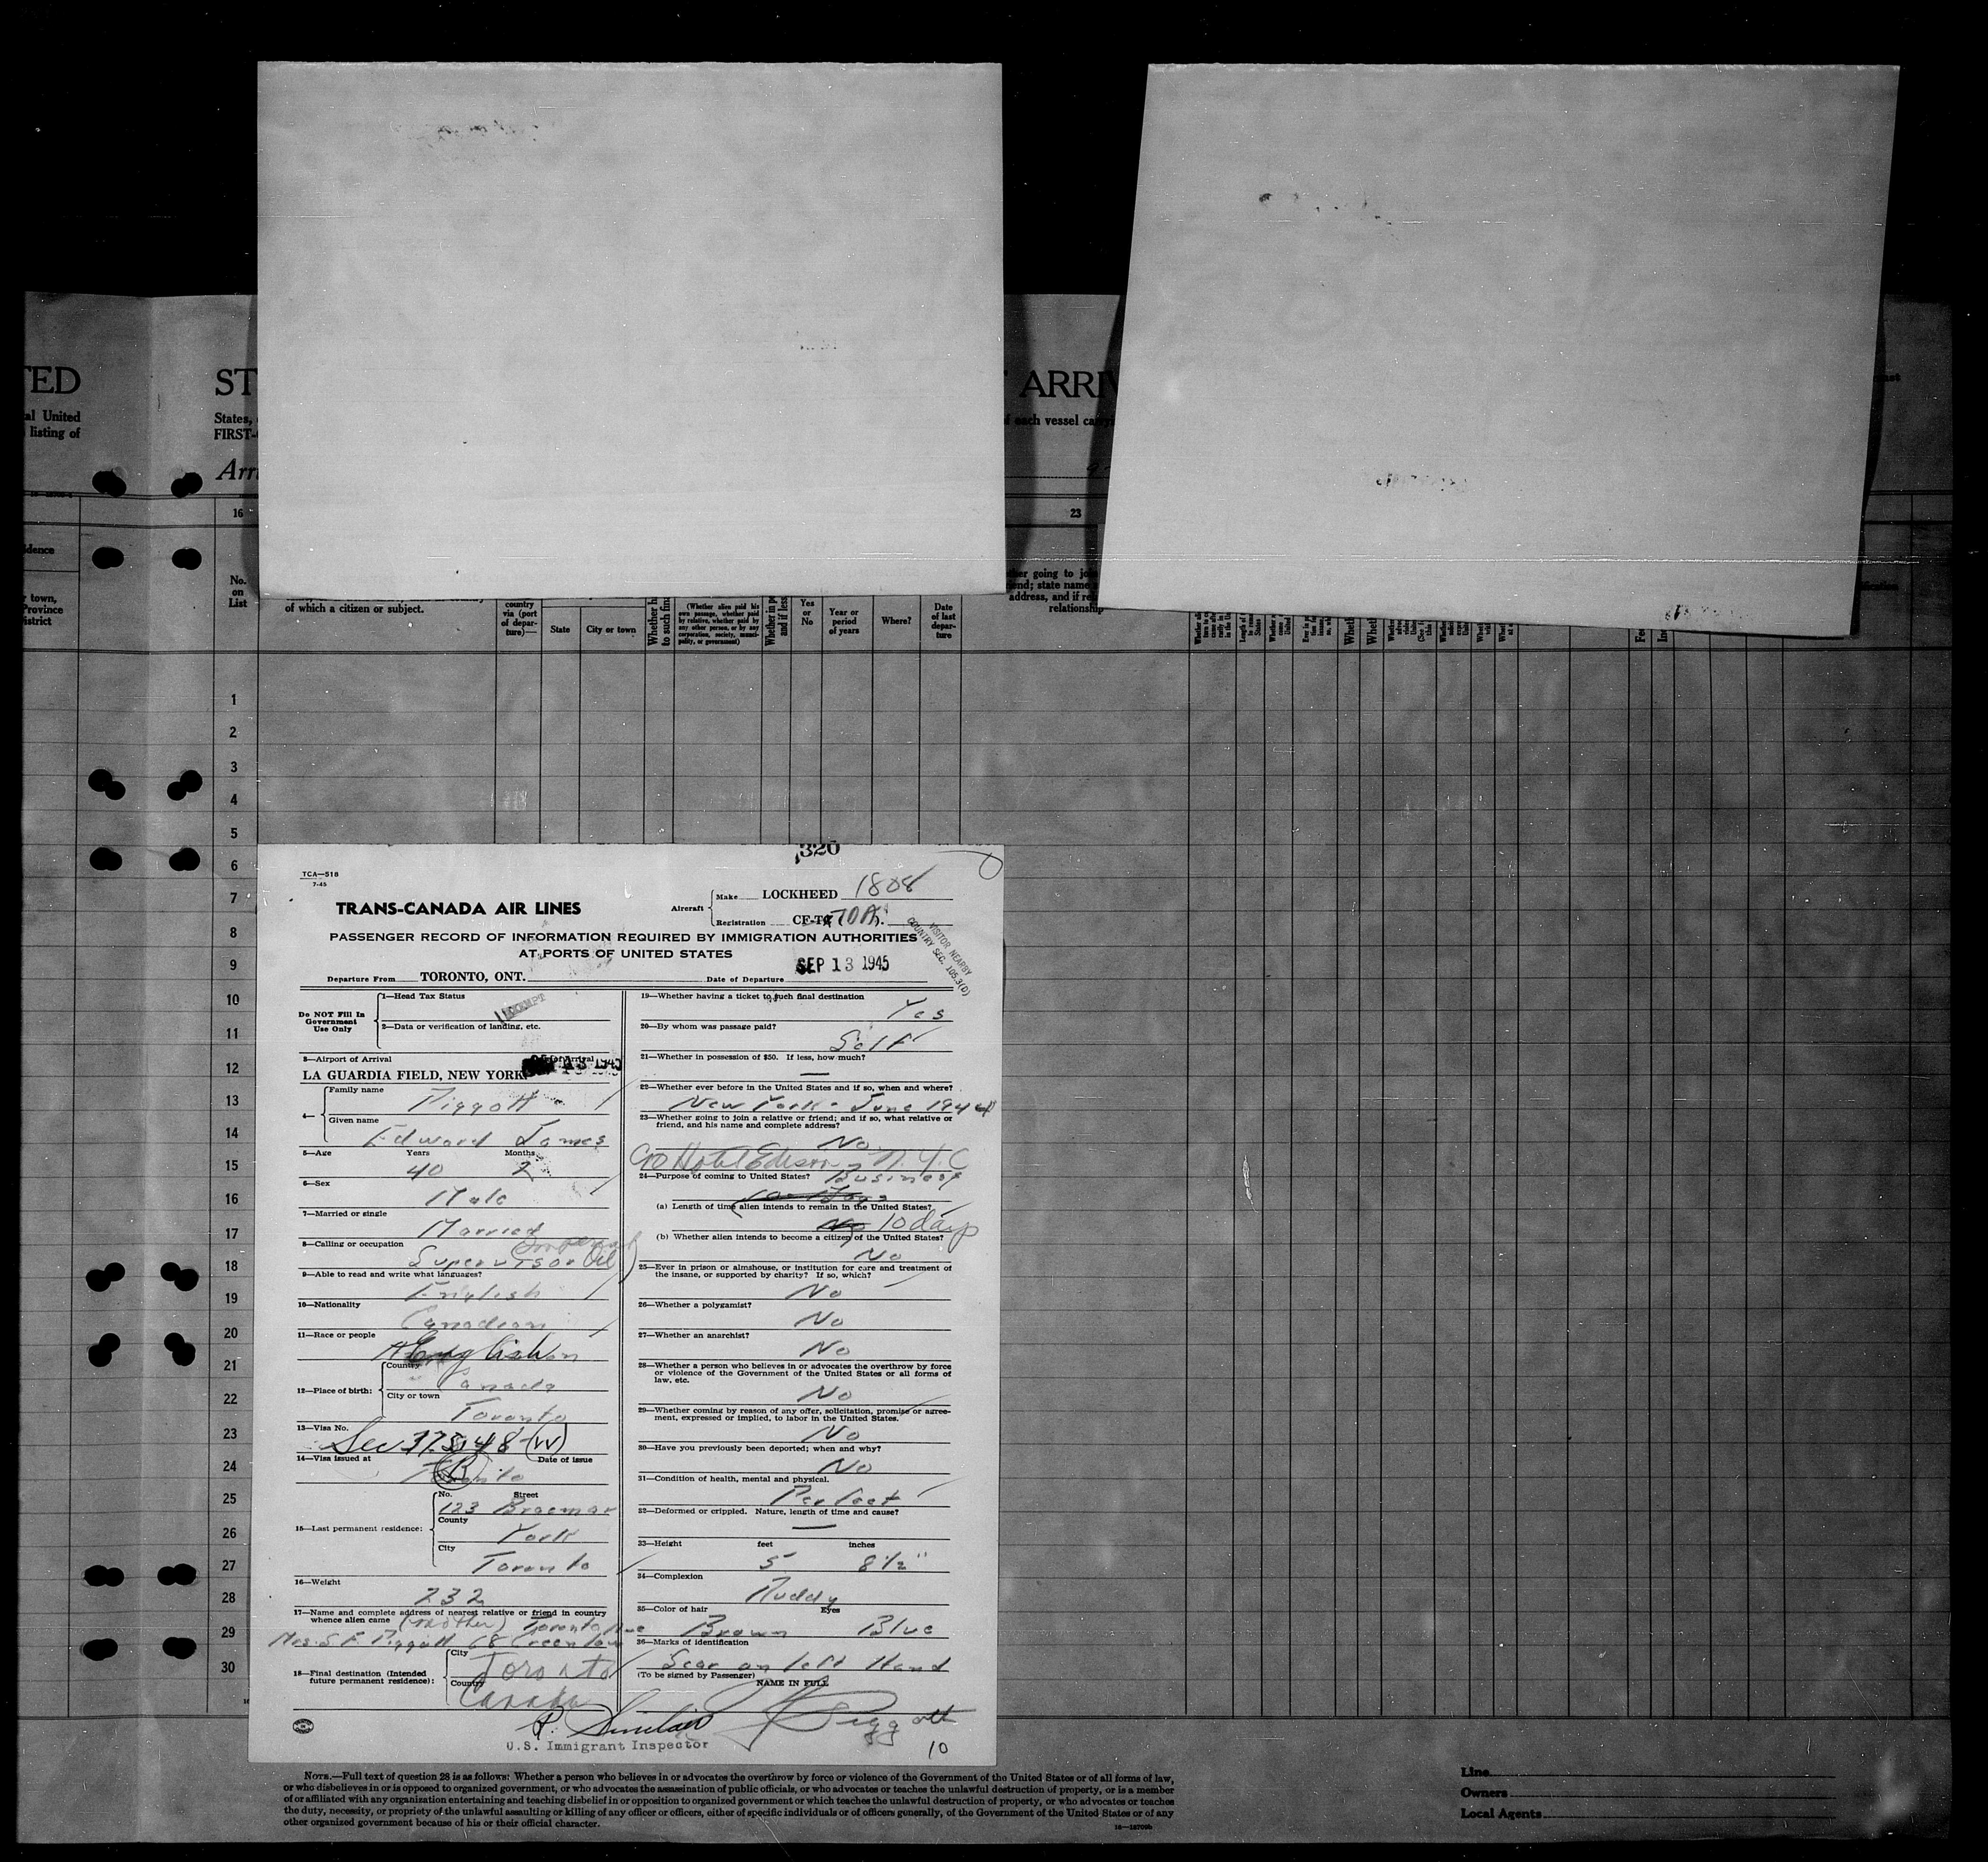 TED
al United
listing of
ST
ARRIV
States,
each vessel carry
FIRST-
Arri
16
23
idence
No.
on
List
r town,
Province
istrict
of which a citizen or subject.
country
via (port
of depar-
ture)—
State
City or town
(Whether alien paid his
own passage, whether paid
by relative, whether paid by
any other person, or by any
corporation, society, munici-
pality, or government)
Yes
or
No
Year or
period
of years
Where?
Date
of last
depar-
ture
address, and if re
relationship
1
2
3
4
5
6
7
8
9
10
11
12
13
14
15
16
17
18
19
20
21
22
23
24
25
26
27
28
29
30
320
TCA—518
7-45
TRANS-CANADA AIR LINES
Aircraft
Make LOCKHEED 1808
Registration CF-T
VISITOR NEARBY
COUNTRY SEC. 105.3(D)
PASSENGER RECORD OF INFORMATION REQUIRED BY IMMIGRATION AUTHORITIES
AT PORTS OF UNITED STATES
Departure From TORONTO, ONT. Date of Departure SEP 13 1945
Do NOT Fill In
Government
Use Only
1—Head Tax Status
EXEMPT
2—Data or verification of landing, etc.
3—Airport of Arrival
LA GUARDIA FIELD, NEW YORK
4—
Family name
Piggott
Given name
Edward James
5—Age Years Months
40 2
6—Sex
Male
7—Married or single
Married
8—Calling or occupation
Supervisor Imperial Oil
9—Able to read and write what languages?
English
10—Nationality
Canadian
11—Race or people
English
12—Place of birth:
Country
Canada
City or town
Toronto
13—Visa No.
Sec 175.48 (W)
14—Visa issued at Date of issue
Toronto
15—Last permanent residence:
No. Street
123 Braemar
County
York
City
Toronto
16—Weight
232
17—Name and complete address of nearest relative or friend in country
whence alien came (Mother) Toronto
Mrs. S. F. Piggott 68 Greenlaw Ave
18—Final destination (Intended
future permanent residence):
City
Toronto
Country
Canada
19—Whether having a ticket to such final destination
Yes
20—By whom was passage paid?
Self
21—Whether in possession of $50. If less, how much?
—
22—Whether ever before in the United States and if so, when and where?
New York - June 1944
23—Whether going to join a relative or friend; and if so, what relative or
friend, and his name and complete address?
No
c/o Hotel Edison N.Y.C
24—Purpose of coming to United States? Business
(a) Length of time alien intends to remain in the United States?
10 days
(b) Whether alien intends to become a citizen of the United States?
No
25—Ever in prison or almshouse, or institution for care and treatment of
the insane, or supported by charity? If so, which?
No
26—Whether a polygamist?
No
27—Whether an anarchist?
No
28—Whether a person who believes in or advocates the overthrow by force
or violence of the Government of the United States or all forms of
law, etc.
No
29—Whether coming by reason of any offer, solicitation, promise or agree-
ment, expressed or implied, to labor in the United States.
No
30—Have you previously been deported; when and why?
No
31—Condition of health, mental and physical.
Perfect
32—Deformed or crippled. Nature, length of time and cause?
—
33—Height feet inches
5 8½"
34—Complexion
Ruddy
35—Color of hair Eyes
Brown Blue
36—Marks of identification
Scar on left Hand
(To be signed by Passenger) NAME IN FULL
Piggott
P. Sinclair
U.S. Immigrant Inspector
10
NOTE.—Full text of question 28 is as follows: Whether a person who believes in or advocates the overthrow by force or violence of the Government of the United States or of all forms of law,
or who disbelieves in or is opposed to organized government, or who advocates the assassination of public officials, or who advocates or teaches the unlawful destruction of property, or is a member
of or affiliated with any organization entertaining and teaching disbelief in or opposition to organized government or which teaches the unlawful destruction of property, or who advocates or teaches
the duty, necessity, or propriety of the unlawful assaulting or killing of any officer or officers, either of specific individuals or of officers generally, of the Government of the United States or of any
other organized government because of his or their official character.
16—18709b
Line
Owners
Local Agents